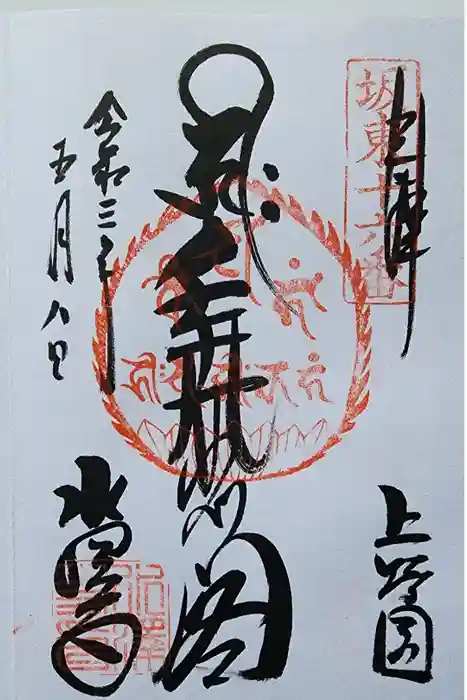 坂東十六番
奉拝
上野国
千手大悲閣
令和三年
五月八日
水澤寺